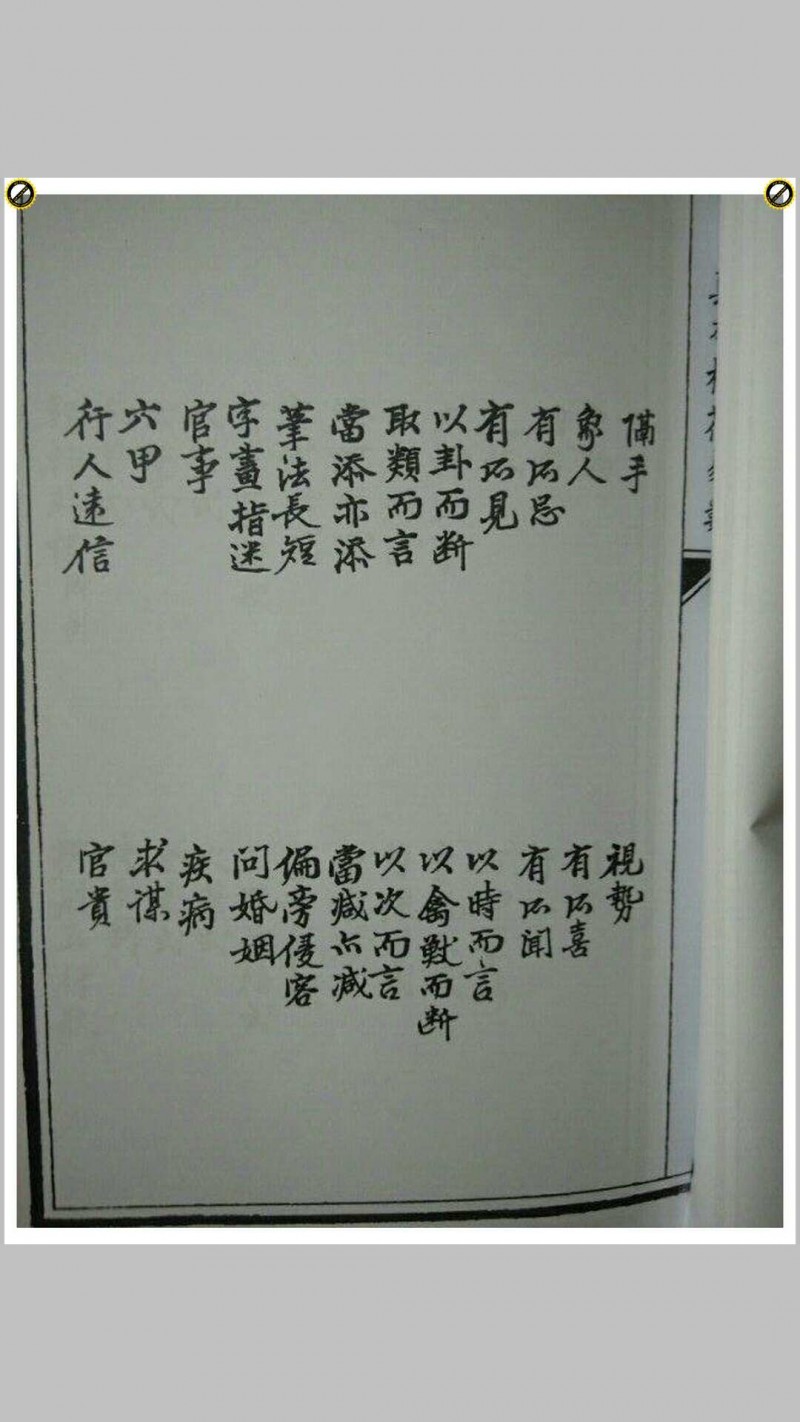 滿手
象人
有所忌
有所見
以卦而斷
取類而言
當添亦添
筆法長短
字畫指迷
官事
六甲
行人遠信
視勢
有所喜
有所聞
以時而言
以禽獸而斷
以次而言
當減亦減
偏旁侵客
問婚姻
疾病
求謀
官貴